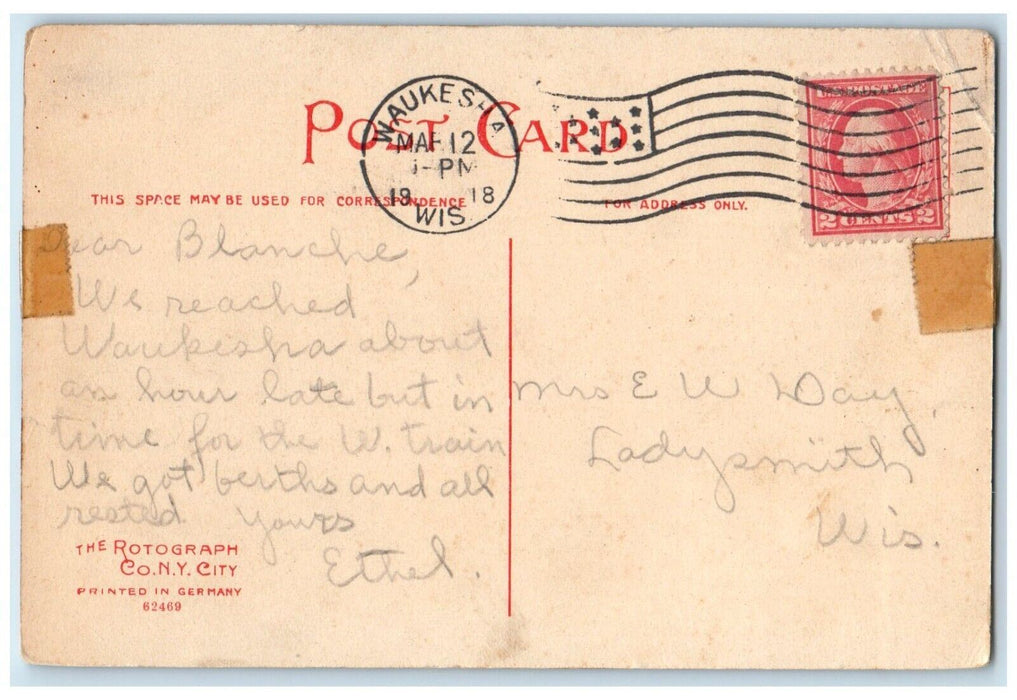 POST CARD
WAUKESHA
MAR 12
PM
19 18
WIS
U.S. POSTAGE
2 CENTS 2
THIS SPACE MAY BE USED FOR CORRESPONDENCE
FOR ADDRESS ONLY.
Dear Blanche,
We reached
Waukesha about
an hour late but in
time for the W. train
We got berths and all
rested Yours
Ethel.
Mrs E W Day,
Ladysmith
Wis.
THE ROTOGRAPH
CO. N.Y. CITY
PRINTED IN GERMANY
62469